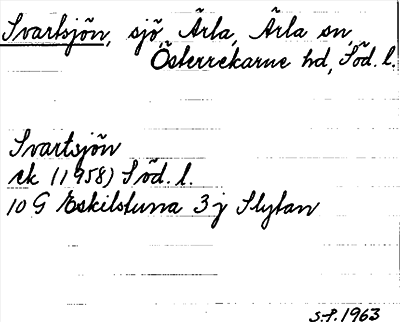 Svartsjön, sjö, Ärla, Ärla sn,
Österrekarne hd, Söd. l.
Svartsjön
ek (1958) Söd. l.
10 G Eskilstuna 3 j Slytan
S.P. 1963